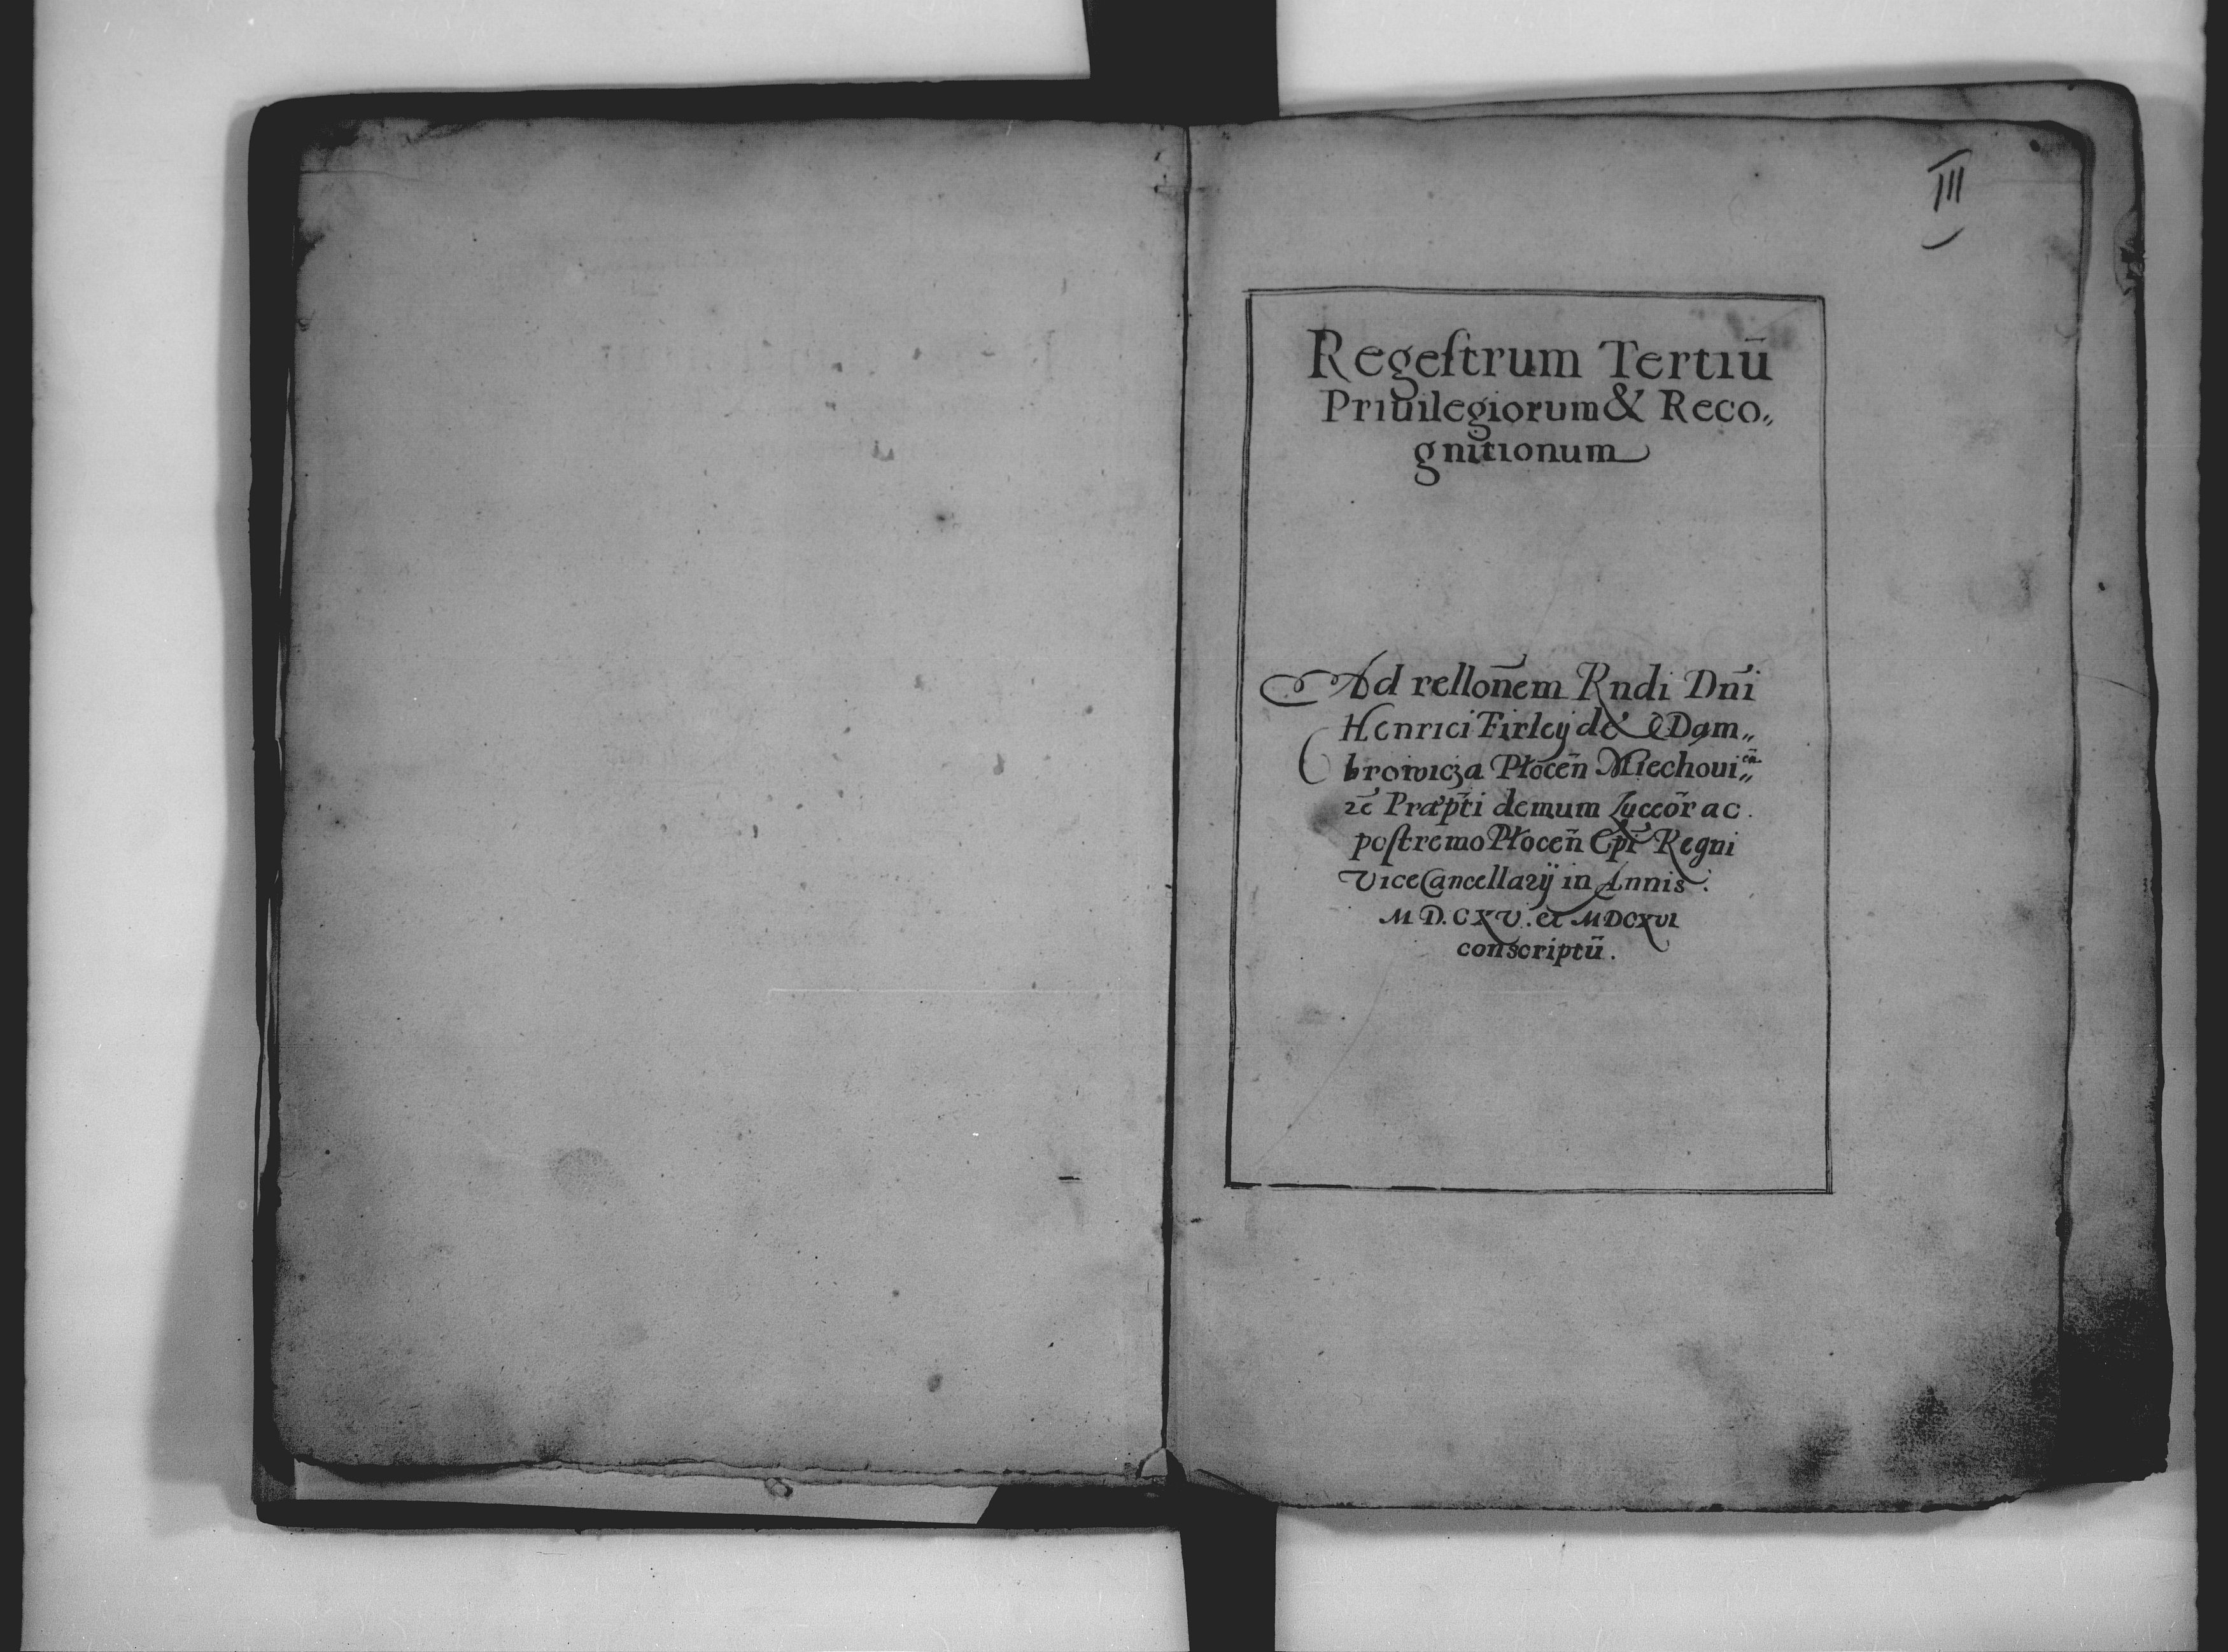 III
Regeſtrum Tertiū
Priuilegiorum & Reco„
gnitionum
Ad relloñem Rndi Dñi
Henrici Firleÿ de Dąm„
browicza Płoceñ Miechoui„eñ
ꝛc Præpti demum Luceōr ac
poſtremo Płoceñ Epi Regni
ViceCancellarÿ in Annis.
M D.CXV. et MDCXVI
conscriptū.